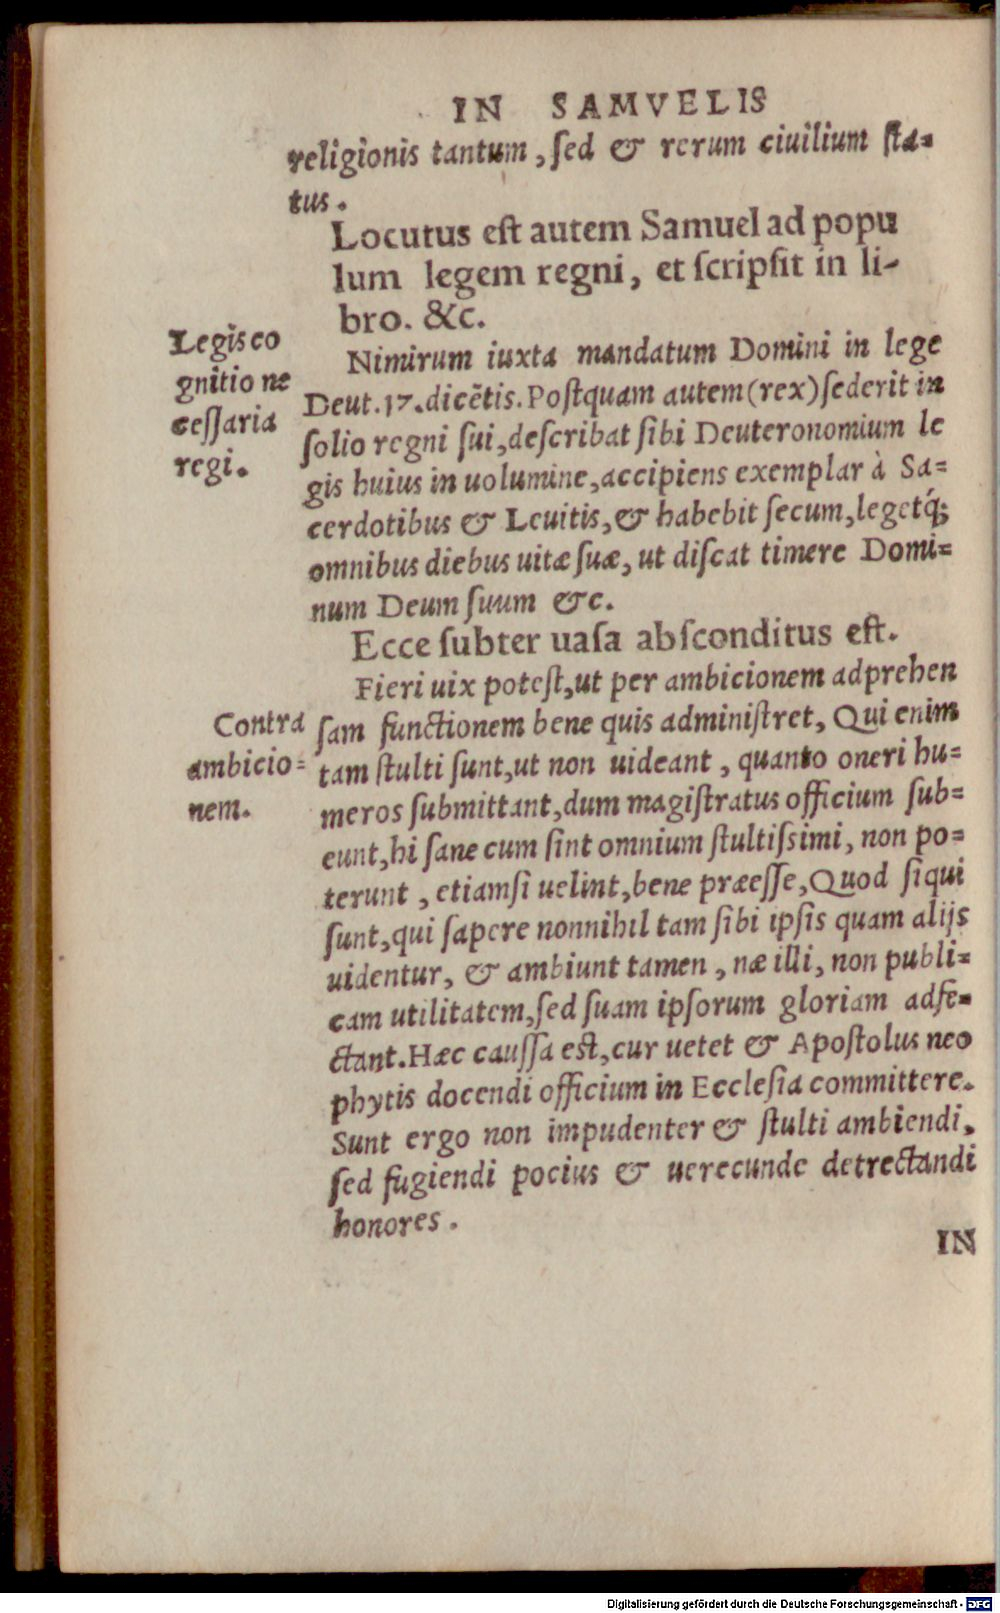 IN SAMVELIS
religionis tantum, sed & rerum ciuilium sta=
tus.
Locutus est autem Samuel ad popu
lum legem regni, et scripsit in li-
bro. &c.
Legis co
gnitio ne
cessaria
regi.
Nimirum iuxta mandatum Domini in lege
Deut.17.dicẽtis.Postquam autem(rex)sederit in
solio regni sui,describat sibi Deuteronomium le
gis huius in uolumine,accipiens exemplar à Sa=
cerdotibus & Leuitis,& habebit secum,legetq́;
omnibus diebus uitæ suæ, ut discat timere Domi=
num Deum suum &c.
Ecce subter uasa absconditus est.
Fieri uix potest,ut per ambicionem adprehen
Contra
ambicio=
nem.
sam functionem bene quis administret, Qui enim
tam stulti sunt,ut non uideant, quanto oneri hu=
meros submittant,dum magistratus officium sub=
eunt,hi sane cum sint omnium stultissimi, non po=
terunt, etiamsi uelint,bene præesse,Quod siqui
sunt,qui sapere nonnihil tam sibi ipsis quam alijs
uidentur, & ambiunt tamen, næ illi, non publi=
cam utilitatem,sed suam ipsorum gloriam adfe=
ctant.Hæc caussa est,cur uetet & Apostolus neo
phytis docendi officium in Ecclesia committere.
Sunt ergo non impudenter & stulti ambiendi,
sed fugiendi pocius & uerecunde detrectandi
honores.
IN
Digitalisierung gefördert durch die Deutsche Forschungsgemeinschaft - DFG